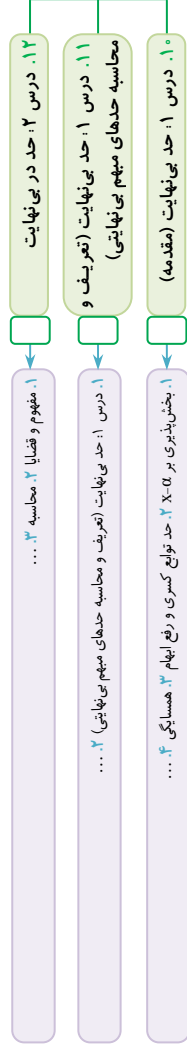 ۱۰. درس ۱: حد بی‌نهایت (مقدمه)
۱. بخش‌پذیری بر x-α ۲. حد توابع کسری و رفع ابهام ۳. همسایگی ۴. ...
۱۱. درس ۱: حد بی‌نهایت (تعریف و
محاسبه حدهای مبهم بی‌نهایتی)
۱. درس ۱: حد بی‌نهایت (تعریف و محاسبه حدهای مبهم بی‌نهایتی) ۲. ...
۱۲. درس ۲: حد در بی‌نهایت
۱. مفهوم و قضایا ۲. محاسبه ۳. ...